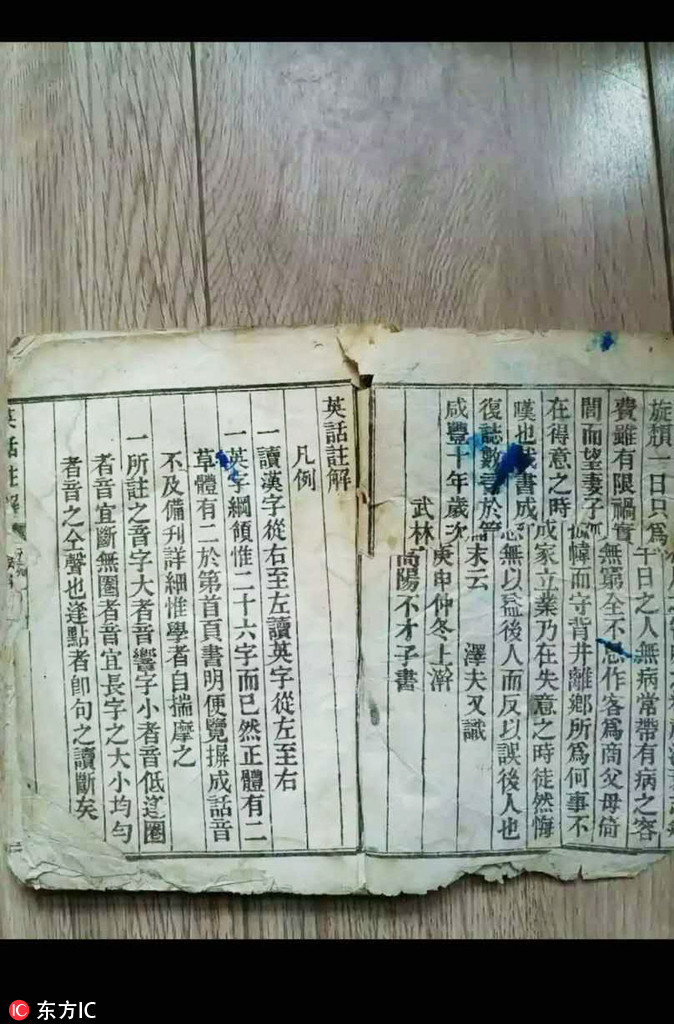 旋頹一日只爲千日之人無病常帶有病之容
費雖有限禍實無窮全不思作客爲商父母倚
閭而望妻子 幃而守背井離鄉所爲何事不
在得意之時成家立業乃在失意之時徒然悔
嘆也哉書成恐無以益後人而反以誤後人也
復誌數言於 末云 澤夫又識
咸豐十年歲次庚申仲冬上澣
武林高陽不才子書
英話註解
凡例
一讀漢字從右至左讀英字從左至右
一英字綱領惟二十六字而已然正體有二
草體有二於第首頁書明便覽摒成話音
不及備刊詳細惟學者自揣摩之
一所註之音字大者音響字小者音低逢圈
者音宜斷無圈者音宜長字之大小均勻
者音之仝聲也逢點者卽句之讀斷矣
英話註解
東方IC